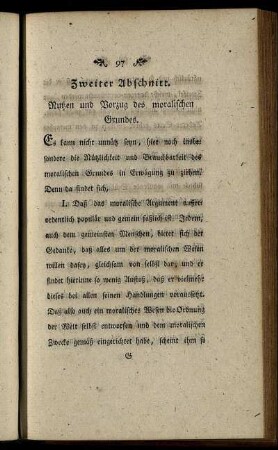 97
Zweiter Abschnitt.
Nutzen und Vorzug des moralischen
Grundes.
Es kann nicht unnütz seyn, hier noch insbe-
sondere die Nützlichkeit und Brauchbarkeit des
moralischen Grundes in Erwägung zu ziehen.
Denn da findet sich,
I. Daß das moralische Argument außer-
ordentlich populär und gemein faßlich ist. Jedem,
auch dem gemeinsten Menschen, bietet sich der
Gedanke, daß alles um der moralischen Wesen
willen dasey, gleichsam von selbst dar, und er
findet hierinne so wenig Anstoß, daß er vielmehr
dieses bei allen seinen Handlungen voraussetzt.
Daß also auch ein moralisches Wesen die Ordnung
der Welt selbst entworfen und dem moralischen
Zwecke gemäß eingerichtet habe, scheint ihm so
G